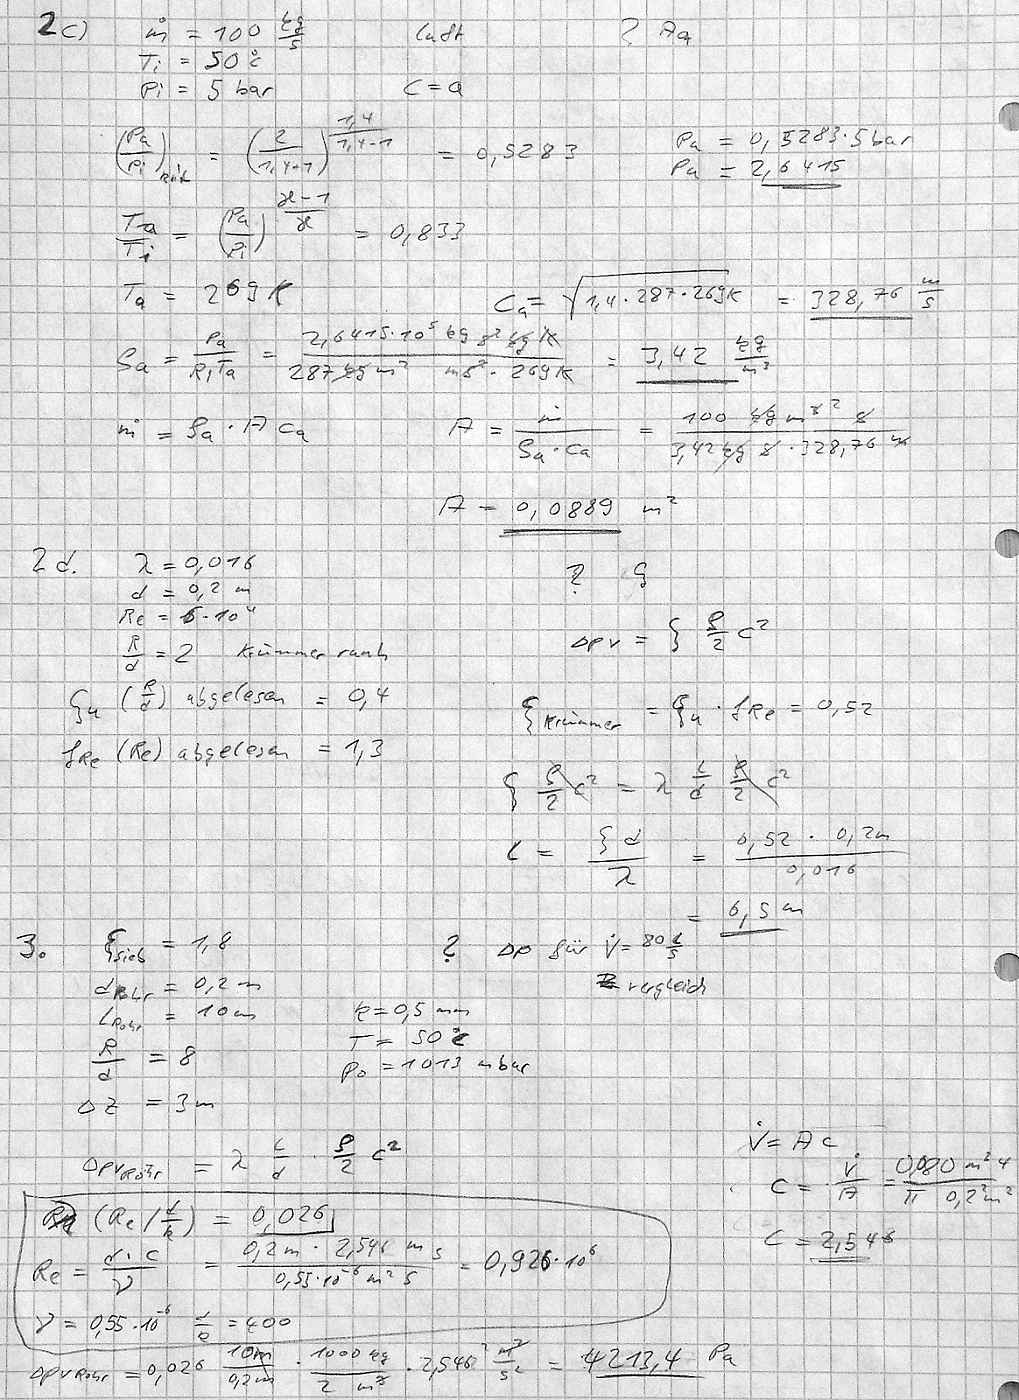 2c) ṁ = 100 kg/s Luft ? Aa
Ti = 50°C
Pi = 5 bar C = a
(Pa/Pi)krit = (2/(1,4+1))^(1,4/(1,4-1)) = 0,5283 Pa = 0,5283·5bar
Pa = 2,6415
Ta/Ti = (Pa/Pi)^((ϰ-1)/ϰ) = 0,833
Ta = 269 K Ca = √(1,4·287·269K) = 328,76 m/s
ρa = Pa/(Ri Ta) = (2,6415·10⁵ kg s² kg K)/(287 kg m² ms²·269K) = 3,42 kg/m³
ṁ = ρa · A Ca A = ṁ/(ρa·Ca) = (100 kg m³ s)/(3,42 kg s · 328,76 m)
A = 0,0889 m²
2d. λ = 0,016 ? ζ
d = 0,2 m
Re = 6·10⁴
R/d = 2 Krümmer rauh Δpv = ζ ρ/2 c²
ζu (R/d) abgelesen = 0,4 ζKrümmer = ζu · fRe = 0,52
fRe (Re) abgelesen = 1,3
ζ ρ/2 c² = λ L/d ρ/2 c²
L = ζ d/λ = (0,52 · 0,2m)/0,016
= 6,5 m
3. ζSieb = 1,8 ? Δp für V̇ = 80 l/s
dRohr = 0,2 m vergleich
LRohr = 10m k = 0,5 mm
R/d = 8 T = 50°C
p₀ = 1013 mbar
Δz = 3m
V̇ = A c
ΔpvRohr = λ L/d · ρ/2 c²
C = V̇/A = (0,080 m³ 4)/(π 0,2² m²)
(Re / d/k) = 0,026
C = 2,546
Re = d·c/ν = (0,2m · 2,546 m s)/(0,55·10⁻⁶ m² s) = 0,926·10⁶
ν = 0,55·10⁻⁶ d/k = 400
ΔpvRohr = 0,026 10m/0,2m · 1000 kg/2 m³ · 2,546² m²/s² = 4213,4 Pa